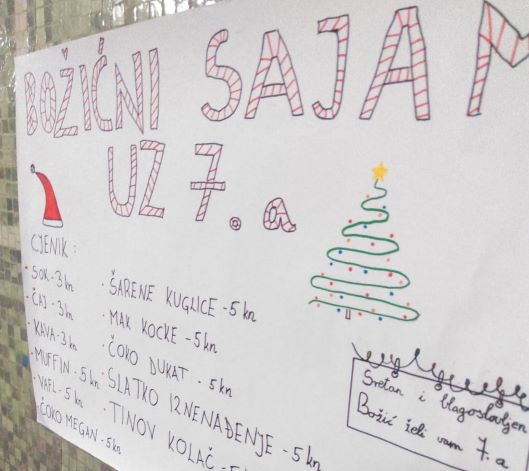 BOŽIĆNI SAJAM
UZ 7.a
CJENIK:
· SOK - 3 kn
· ČAJ - 3 kn
· KAVA - 3 kn
· MUFFIN - 5 kn
· VAFL - 5 kn
· ČOKO MEGAN - 5 kn
· ŠARENE KUGLICE - 5 kn
· MAK KOCKE - 5 kn
· ČOKO DUKAT - 5 kn
· SLATKO IZNENAĐENJE - 5 kn
· TINOV KOLAČ - 5 kn
Sretan i blagoslovljen
Božić želi vam 7.a